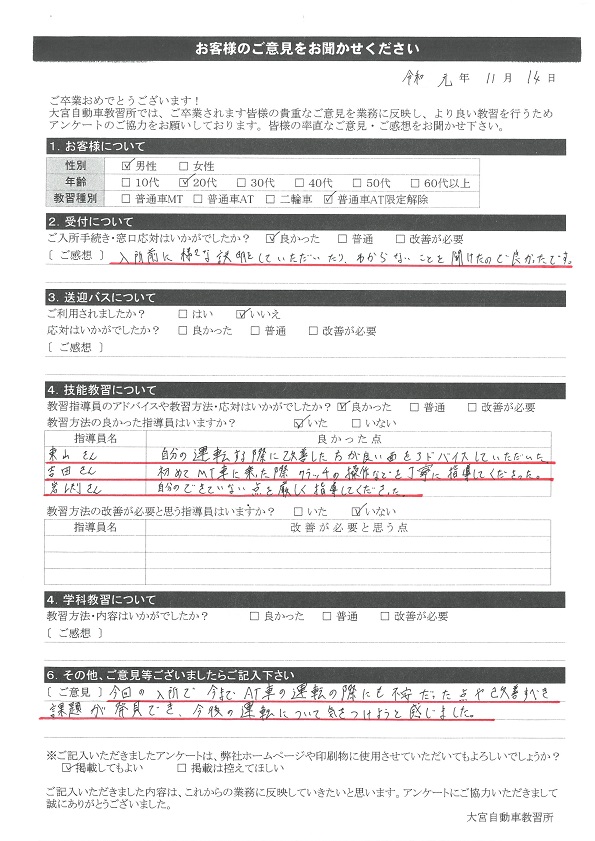 お客様のご意見をお聞かせください
令和 元 年 11 月 14 日
ご卒業おめでとうございます！
大宮自動車教習所では、ご卒業されます皆様の貴重なご意見を業務に反映し、より良い教習を行うため
アンケートのご協力をお願いしております。皆様の率直なご意見・ご感想をお聞かせ下さい。
1. お客様について
性別 ☑男性 □女性
年齢 □10代 ☑20代 □30代 □40代 □50代 □60代以上
教習種別 □普通車MT □普通車AT □二輪車 ☑普通車AT限定解除
2. 受付について
ご入所手続き・窓口応対はいかがでしたか？ ☑良かった □普通 □改善が必要
〔ご感想〕 入所前に様々な説明をしていただいたり、わからないことを聞けたので良かったです。
3. 送迎バスについて
ご利用されましたか？ □はい ☑いいえ
応対はいかがでしたか？ □良かった □普通 □改善が必要
〔ご感想〕
4. 技能教習について
教習指導員のアドバイスや教習方法・応対はいかがでしたか？ ☑良かった □普通 □改善が必要
教習方法の良かった指導員はいますか？ ☑いた □いない
指導員名 良かった点
東山さん 自分の運転する際に改善した方が良い面をアドバイスしていただいた
吉田さん 初めてMT車に乗った際、クラッチの操作などを丁寧に指導してくださった。
さん 自分のできていない点を厳しく指導してくださった
教習方法の改善が必要と思う指導員はいますか？ □いた ☑いない
指導員名 改善が必要と思う点
4. 学科教習について
教習方法・内容はいかがでしたか？ □良かった □普通 □改善が必要
〔ご感想〕
6. その他、ご意見等ございましたらご記入下さい
〔ご意見〕 今回の入所で今までAT車の運転の際にも不安だった点や改善すべき
課題が発見でき、今後の運転について気をつけようと感じました。
※ご記入いただきましたアンケートは、弊社ホームページや印刷物に使用させていただいてもよろしいでしょうか？
☑掲載してもよい □掲載は控えてほしい
ご記入いただきました内容は、これからの業務に反映していきたいと思います。アンケートにご協力いただきまして
誠にありがとうございました。
大宮自動車教習所